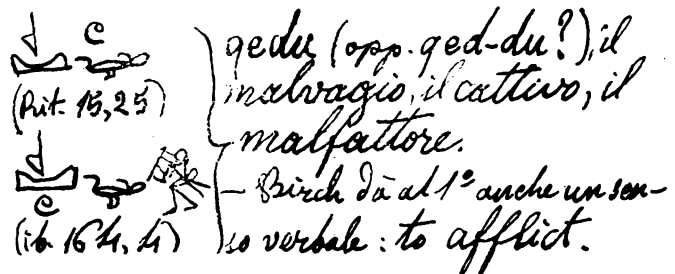 (Rit. 15, 25)
(ib. 164, 4)
qedu (opp. qed-du?), il
malvagio, il cattivo, il
malfattore.
– Birch dà al 1º anche un sen-
so verbale: to afflict.